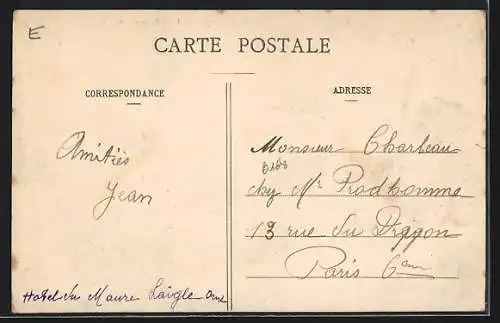 E
CARTE POSTALE
CORRESPONDANCE
ADRESSE
Amitiés
Jean
Monsieur Charleau
chez Mr Prodhomme
13 rue du Dragon
Paris 6em
Hotel du Maure Laigle Orne